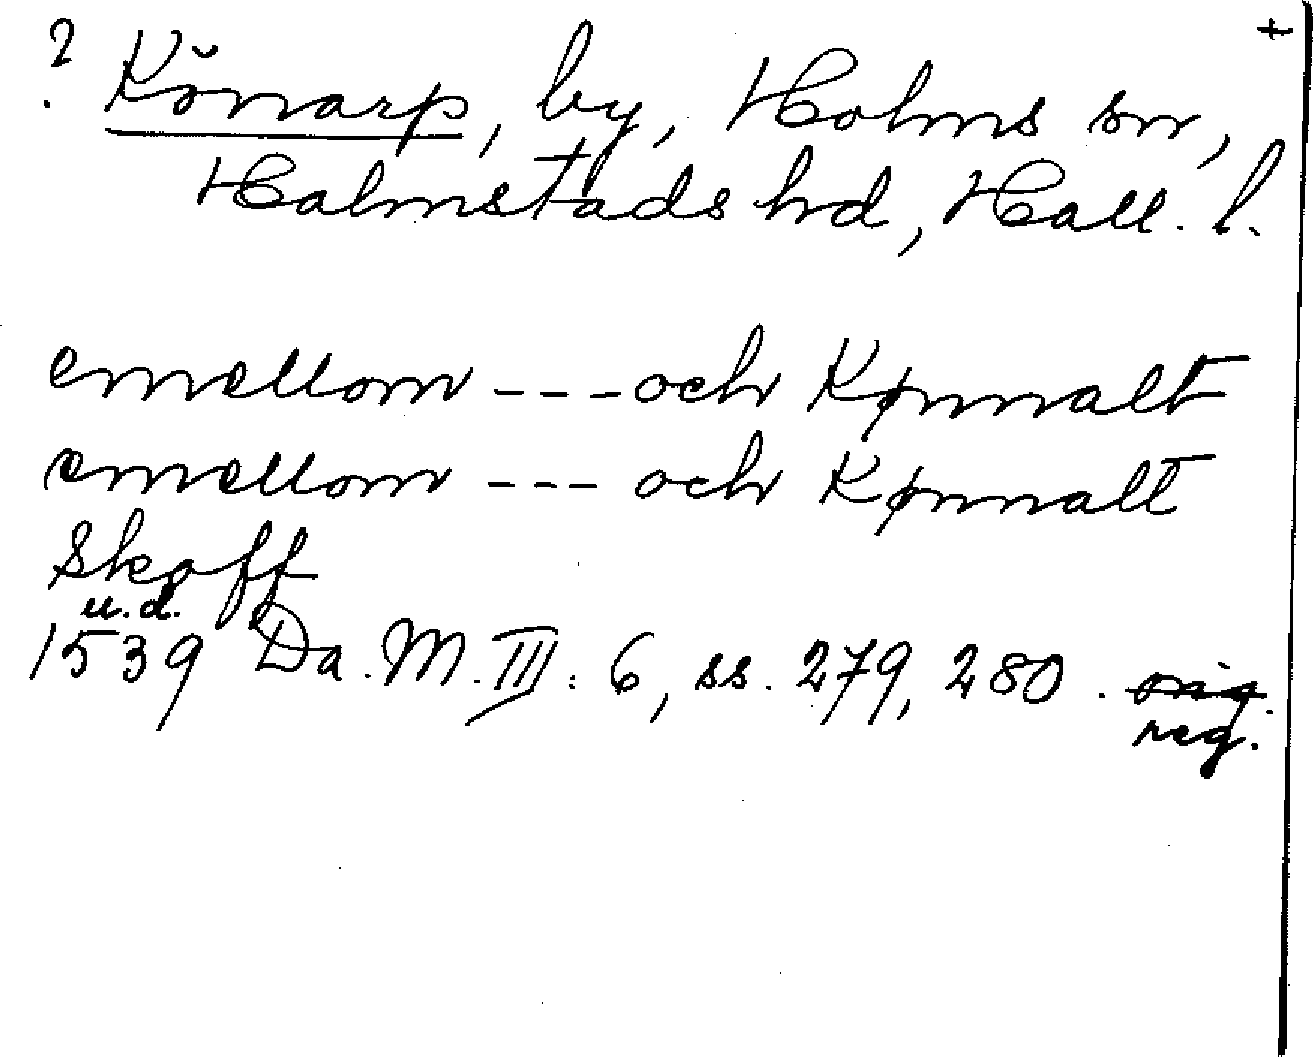 ? Könarp, by, Holms sn, +
Halmstads hd, Hall. l.
emellom --- och Kønnalt
emellom --- och Kønnalt
Skoff
u.d.
1539 Da. M. III: 6, ss. 279, 280. orig.
reg.